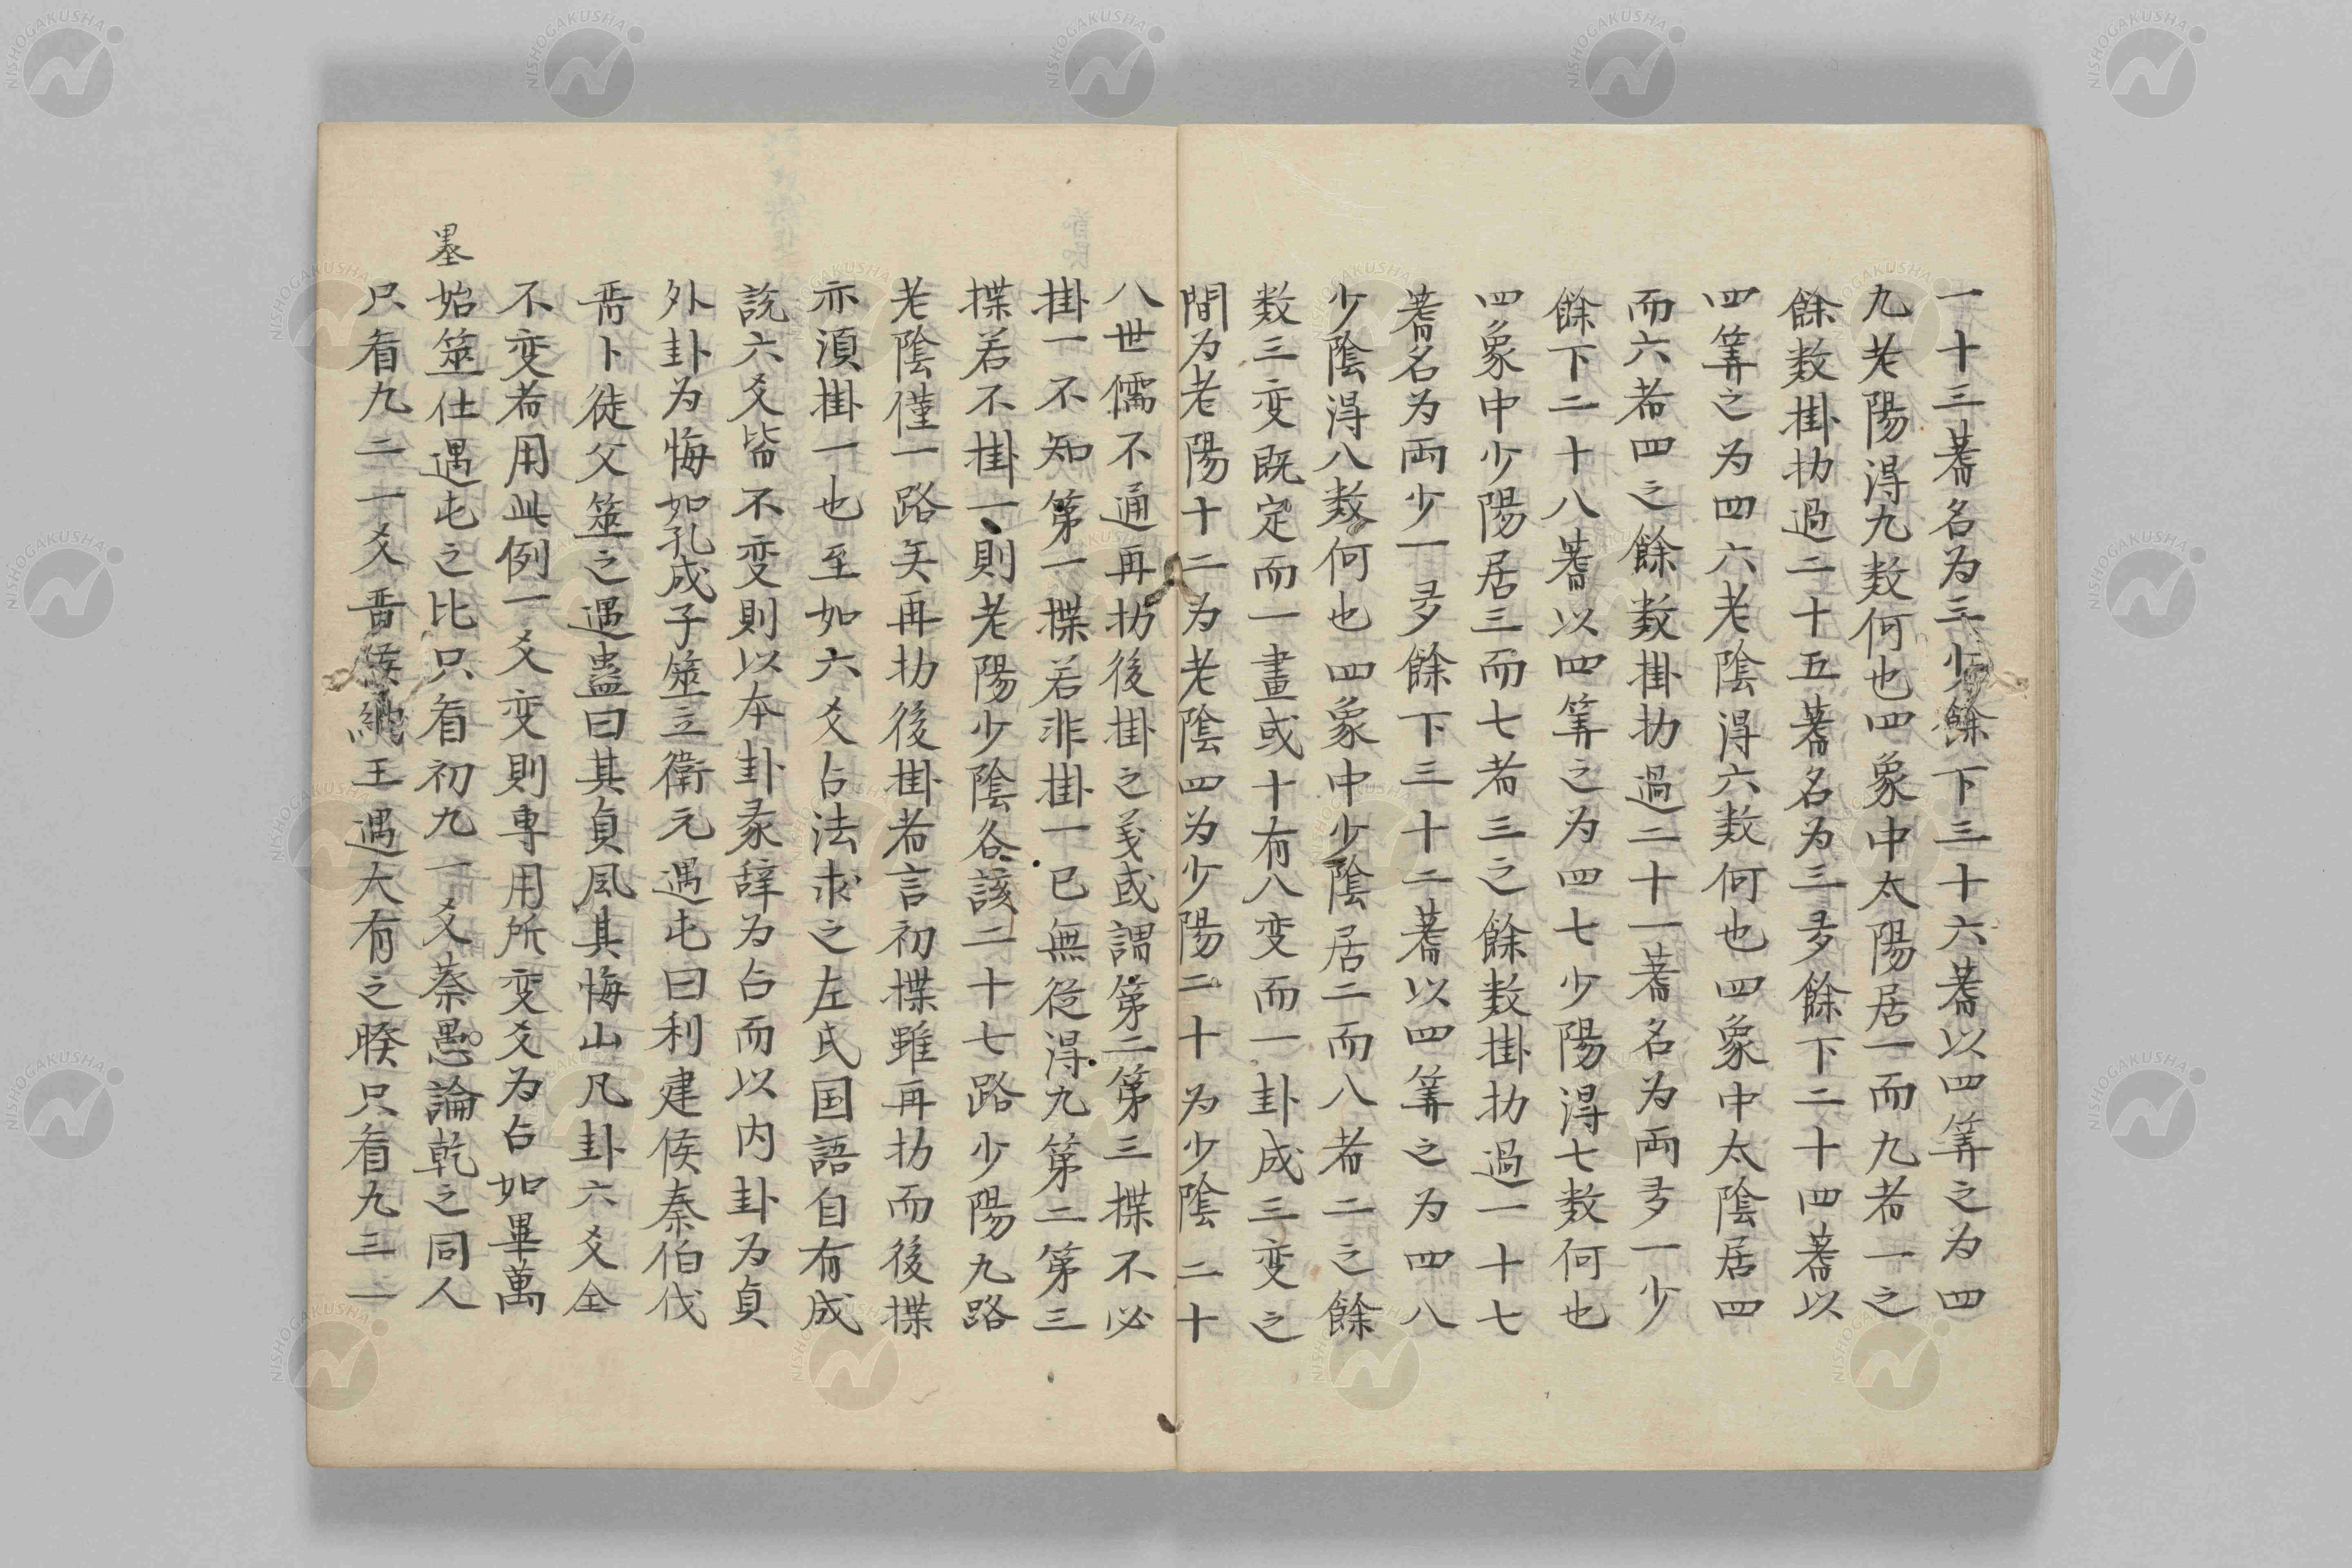 一十三蓍名为三少餘下三十六蓍以四筭之为四
九老陽得九数何也四象中太陽居一而九者一之
餘数掛扐過二十五蓍名为三多餘下二十四蓍以
四筭之为四六老陰得六数何也四象中太陰居四
而六者四之餘数掛扐過二十一蓍名为両多一少
餘下二十八蓍以四筭之为四七少陽得七数何也
四象中少陽居三而七者三之餘数掛扐過一十七
蓍名为両少一多餘下三十二蓍以四筭之为四八
少陰得八数何也四象中少陰居二而八者二之餘
数三变既定而一畫或十有八变而一卦成三变之
間为老陽十二为老陰四为少陽二十为少陰二十
八世儒不通再扐後掛之義或謂第二第三揲不必
掛一不知第一揲若非掛一已無從得九第二第三
揲若不掛一則老陽少陰各該二十七路少陽九路
老陰僅一路矣再扐後掛者言初揲雖再扐而後揲
亦須掛一也至如六爻占法求之左氏国語自有成
說六爻皆不变則以本卦彖辞为占而以内卦为貞
外卦为悔如孔成子筮立衛元遇屯曰利建侯秦伯伐
晋卜徒父筮之遇蠱曰其貞風其悔山凡卦六爻全
不变者用此例一爻变則専用所变爻为占如畢萬
始筮仕遇屯之比只看初九一爻蔡墨論乾之同人
只看九二一爻晋侯納王遇大有之睽只看九三一
墨
NISHOGAKUSHA